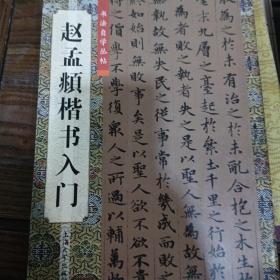 书法自学丛帖
赵孟頫楷书入门
為之於未有治之於未亂合抱之木生於
九層之臺起於累土千里之行始於
敗之執者失之是以聖人無為故無
故無失民之從事常於幾成而敗之
如始則無敗事矣是以聖人欲不欲不貴
之貨學不學復衆人之所過以輔萬物